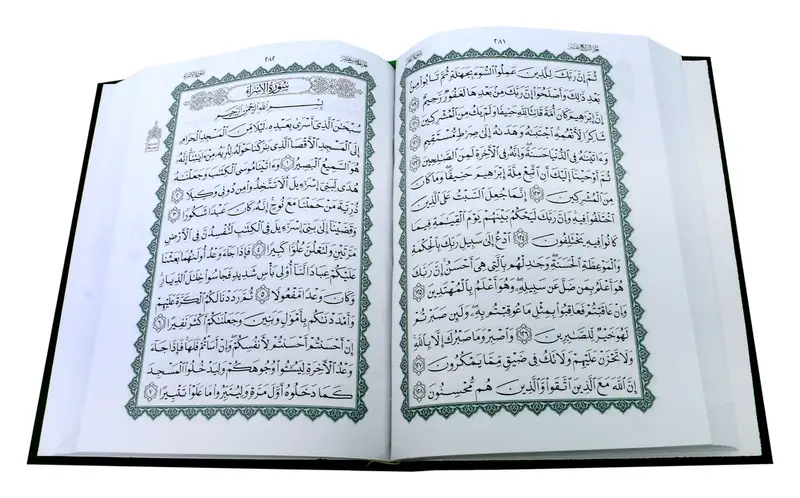 ٢٨١
ثُمَّ إِنَّ رَبَّكَ لِلَّذِينَ عَمِلُوا۟ ٱلسُّوٓءَ بِجَهَٰلَةٍ ثُمَّ تَابُوا۟ مِنۢ
بَعْدِ ذَٰلِكَ وَأَصْلَحُوٓا۟ إِنَّ رَبَّكَ مِنۢ بَعْدِهَا لَغَفُورٌ رَّحِيمٌ ١١٩
إِنَّ إِبْرَٰهِيمَ كَانَ أُمَّةً قَانِتًا لِّلَّهِ حَنِيفًا وَلَمْ يَكُ مِنَ ٱلْمُشْرِكِينَ ١٢٠
شَاكِرًا لِّأَنْعُمِهِ ٱجْتَبَىٰهُ وَهَدَىٰهُ إِلَىٰ صِرَٰطٍ مُّسْتَقِيمٍ ١٢١
وَءَاتَيْنَٰهُ فِى ٱلدُّنْيَا حَسَنَةً وَإِنَّهُۥ فِى ٱلْءَاخِرَةِ لَمِنَ ٱلصَّٰلِحِينَ ١٢٢
ثُمَّ أَوْحَيْنَآ إِلَيْكَ أَنِ ٱتَّبِعْ مِلَّةَ إِبْرَٰهِيمَ حَنِيفًا وَمَا كَانَ
مِنَ ٱلْمُشْرِكِينَ ١٢٣ إِنَّمَا جُعِلَ ٱلسَّبْتُ عَلَى ٱلَّذِينَ
ٱخْتَلَفُوا۟ فِيهِ وَإِنَّ رَبَّكَ لَيَحْكُمُ بَيْنَهُمْ يَوْمَ ٱلْقِيَٰمَةِ فِيمَا
كَانُوا۟ فِيهِ يَخْتَلِفُونَ ١٢٤ ٱدْعُ إِلَىٰ سَبِيلِ رَبِّكَ بِٱلْحِكْمَةِ
وَٱلْمَوْعِظَةِ ٱلْحَسَنَةِ وَجَٰدِلْهُم بِٱلَّتِى هِىَ أَحْسَنُ إِنَّ رَبَّكَ
هُوَ أَعْلَمُ بِمَن ضَلَّ عَن سَبِيلِهِۦ وَهُوَ أَعْلَمُ بِٱلْمُهْتَدِينَ ١٢٥
وَإِنْ عَاقَبْتُمْ فَعَاقِبُوا۟ بِمِثْلِ مَا عُوقِبْتُم بِهِۦ وَلَئِن صَبَرْتُمْ
لَهُوَ خَيْرٌ لِّلصَّٰبِرِينَ ١٢٦ وَٱصْبِرْ وَمَا صَبْرُكَ إِلَّا بِٱللَّهِ
وَلَا تَحْزَنْ عَلَيْهِمْ وَلَا تَكُ فِى ضَيْقٍ مِّمَّا يَمْكُرُونَ ١٢٧
إِنَّ ٱللَّهَ مَعَ ٱلَّذِينَ ٱتَّقَوا۟ وَّٱلَّذِينَ هُم مُّحْسِنُونَ ١٢٨
٢٨٢
سُورَةُ الإِسْرَاءِ
بِسْمِ ٱللَّهِ ٱلرَّحْمَٰنِ ٱلرَّحِيمِ
سُبْحَٰنَ ٱلَّذِىٓ أَسْرَىٰ بِعَبْدِهِۦ لَيْلًا مِّنَ ٱلْمَسْجِدِ ٱلْحَرَامِ
إِلَى ٱلْمَسْجِدِ ٱلْأَقْصَا ٱلَّذِى بَٰرَكْنَا حَوْلَهُۥ لِنُرِيَهُۥ مِنْ ءَايَٰتِنَآ إِنَّهُۥ
هُوَ ٱلسَّمِيعُ ٱلْبَصِيرُ ١ وَءَاتَيْنَا مُوسَى ٱلْكِتَٰبَ وَجَعَلْنَٰهُ
هُدًى لِّبَنِىٓ إِسْرَٰٓءِيلَ أَلَّا تَتَّخِذُوا۟ مِن دُونِى وَكِيلًا ٢
ذُرِّيَّةَ مَنْ حَمَلْنَا مَعَ نُوحٍ إِنَّهُۥ كَانَ عَبْدًا شَكُورًا ٣
وَقَضَيْنَآ إِلَىٰ بَنِىٓ إِسْرَٰٓءِيلَ فِى ٱلْكِتَٰبِ لَتُفْسِدُنَّ فِى ٱلْأَرْضِ
مَرَّتَيْنِ وَلَتَعْلُنَّ عُلُوًّا كَبِيرًا ٤ فَإِذَا جَآءَ وَعْدُ أُولَىٰهُمَا بَعَثْنَا
عَلَيْكُمْ عِبَادًا لَّنَآ أُو۟لِى بَأْسٍ شَدِيدٍ فَجَاسُوا۟ خِلَٰلَ ٱلدِّيَارِ
وَكَانَ وَعْدًا مَّفْعُولًا ٥ ثُمَّ رَدَدْنَا لَكُمُ ٱلْكَرَّةَ عَلَيْهِمْ
وَأَمْدَدْنَٰكُم بِأَمْوَٰلٍ وَبَنِينَ وَجَعَلْنَٰكُمْ أَكْثَرَ نَفِيرًا ٦
إِنْ أَحْسَنتُمْ أَحْسَنتُمْ لِأَنفُسِكُمْ وَإِنْ أَسَأْتُمْ فَلَهَا فَإِذَا جَآءَ
وَعْدُ ٱلْءَاخِرَةِ لِيَسُۥٓـُٔوا۟ وُجُوهَكُمْ وَلِيَدْخُلُوا۟ ٱلْمَسْجِدَ
كَمَا دَخَلُوهُ أَوَّلَ مَرَّةٍ وَلِيُتَبِّرُوا۟ مَا عَلَوْا۟ تَتْبِيرًا ٧